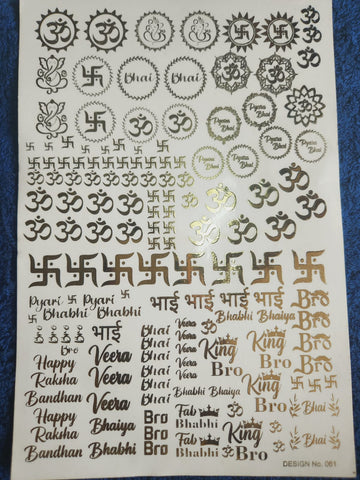 Bhai
Bhai
Pyara
Bhai
Pyara
Bhai
Pyara
Bhai
Pyara
Bhai
Pyari
Bhabhi
Pyari
Bhabhi
भाई भाई भाई भाई
Bro
Bhabhi Bhaiya
Bro
भाई
Bro
Bhai
Bhai
Bhai
Bhai
Bhai
Veera
Veera
Veera
Veera
Veera
King
Bro
King
Bro
Happy
Raksha
Bandhan
Veera
Veera
Bhabhi Bhaiya
Bro
Happy
Raksha
Bandhan
Bhaiya
Bhabhi
Bro
Bro
Bro
Fab
Bhabhi
Fab
Bhabhi
King
Bro
Bhai
Bhai
DESIGN No. 061